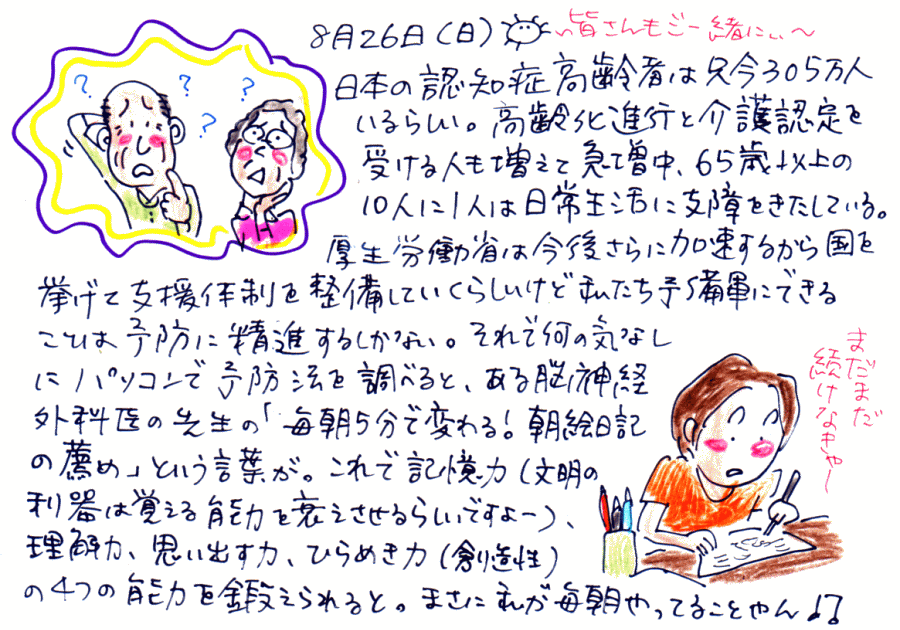 8月26日(日)
皆さんもご一緒にぃ〜
日本の認知症高齢者は只今305万人
いるらしい。高齢化進行と介護認定を
受ける人も増えて急増中、65歳以上の
10人に1人は日常生活に支障をきたしている。
厚生労働省は今後さらに加速するから国を
挙げて支援体制を整備していくらしいけど私たち予備軍にできる
ことは予防に精進するしかない。それで何の気なし
にパソコンで予防法を調べると、ある脳神経
外科医の先生の「毎朝5分で変わる!朝絵日記
の薦め」という言葉が。これで記憶力(文明の
利器は覚える能力を衰えさせるらいですよー)、
理解力、思い出す力、ひらめき力(創造性)
の4つの能力を鍛えられると。まさに私が毎朝やってることやん♪
まだまだ
続けなきゃー
? ? ? ?